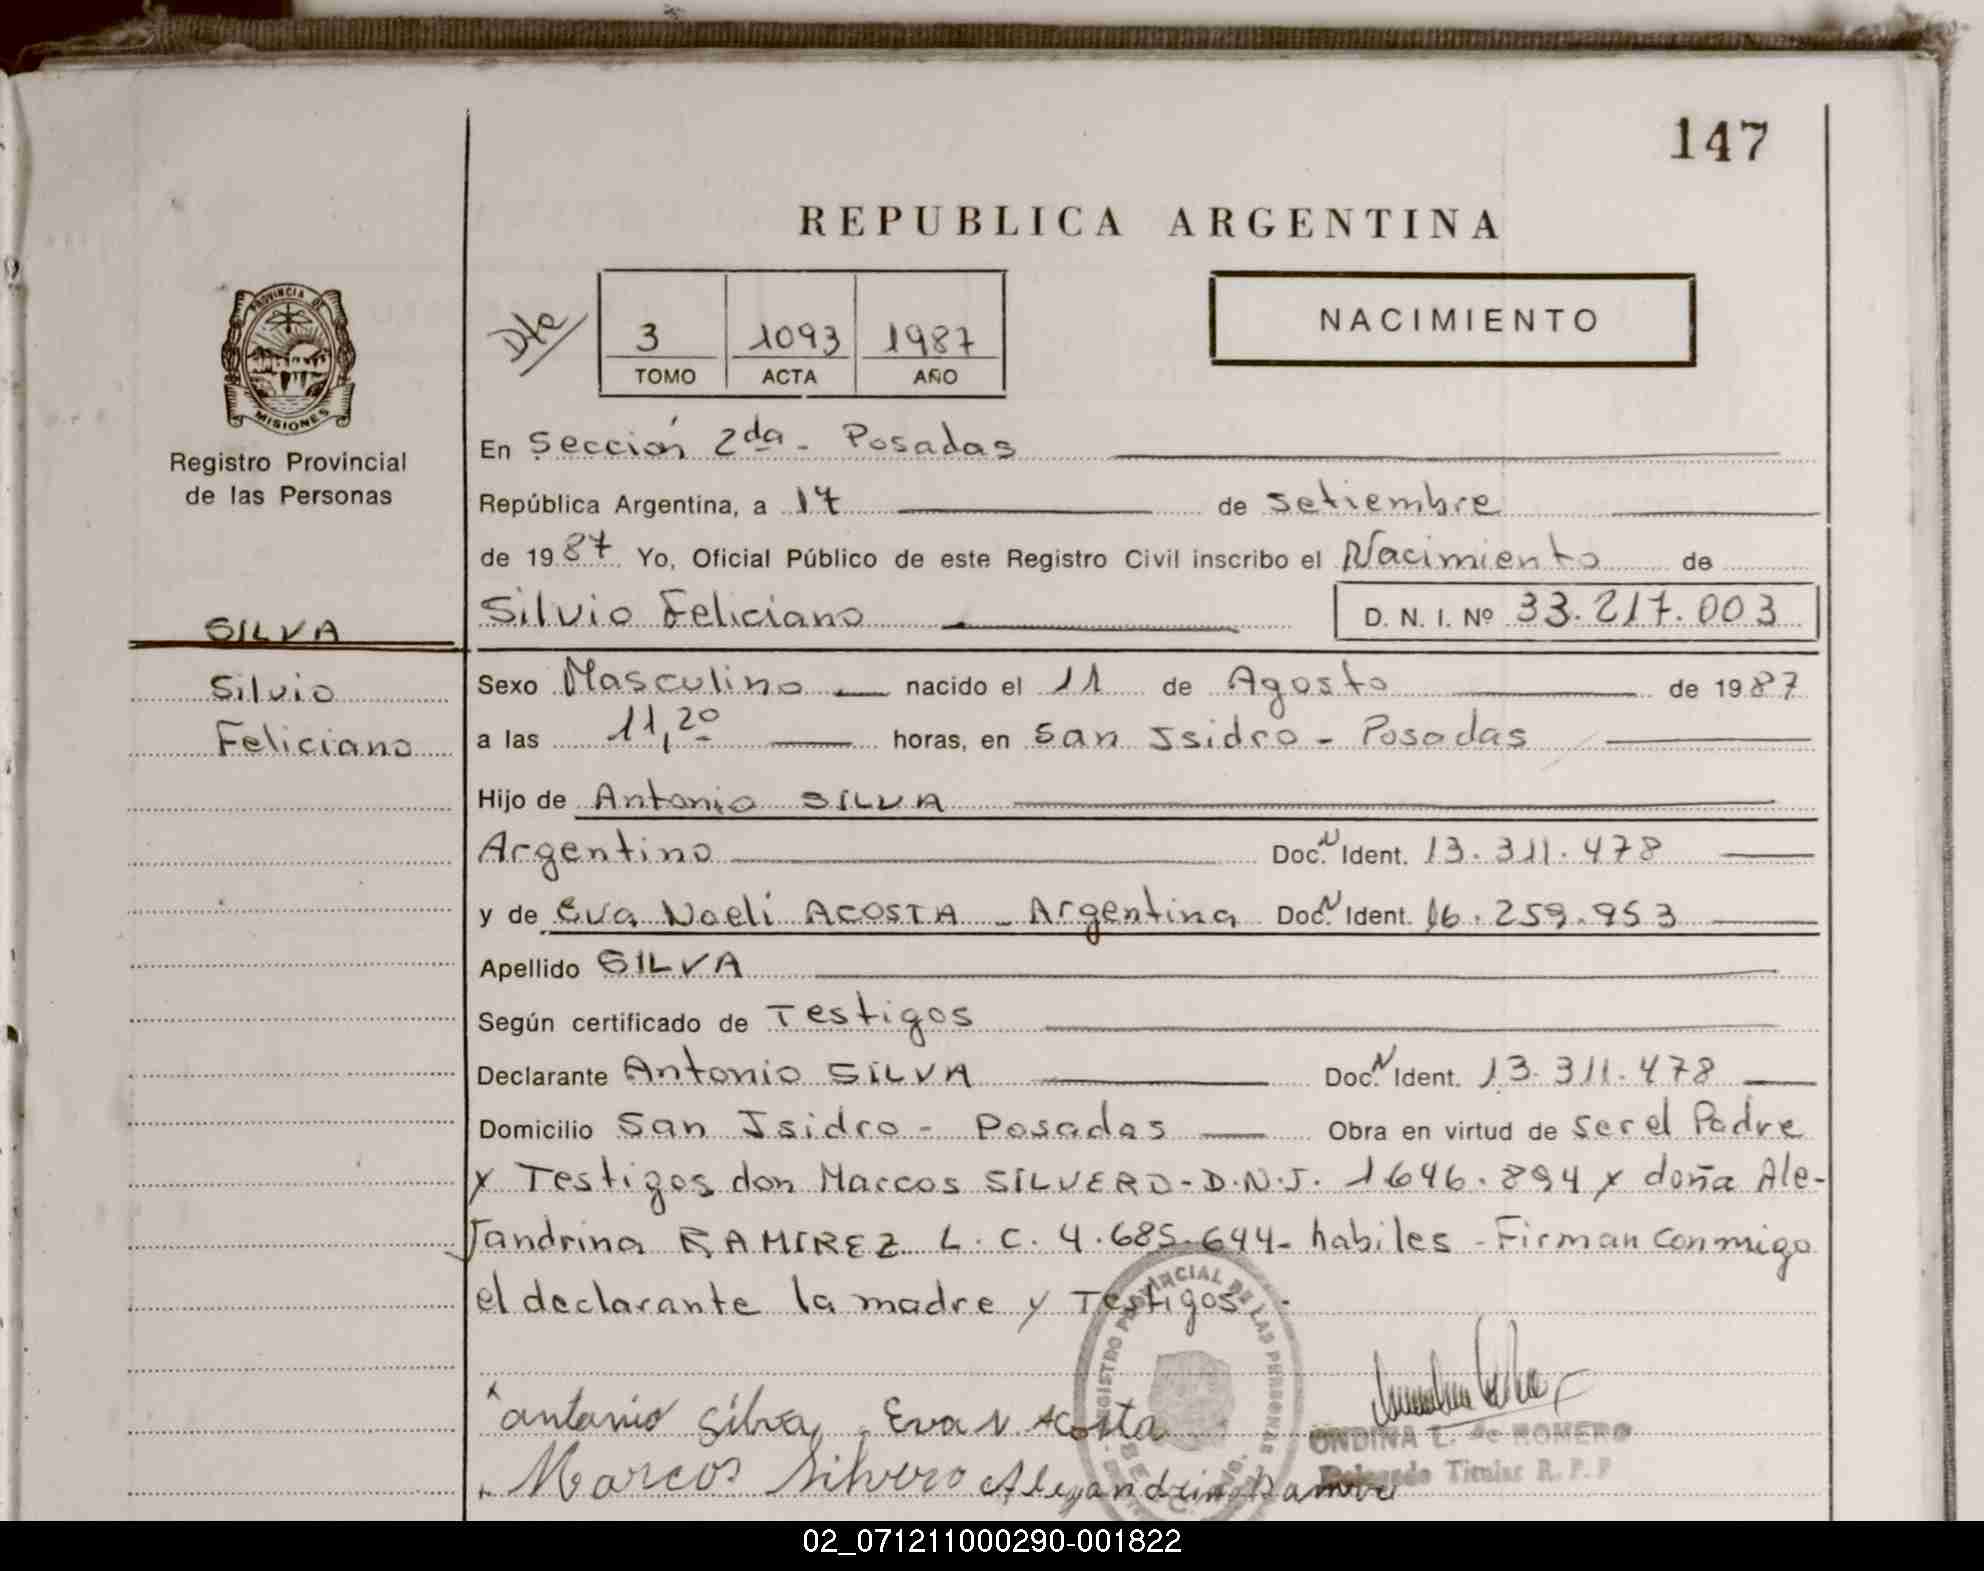 147
REPUBLICA ARGENTINA
Dte
3 1093 1987
TOMO ACTA AÑO
NACIMIENTO
PROVINCIA DE
MISIONES
Registro Provincial
de las Personas
SILVA
Silvio
Feliciano
En Sección 2da - Posadas
República Argentina, a 17 de setiembre
de 1987 Yo, Oficial Público de este Registro Civil inscribo el Nacimiento de
Silvio Feliciano D. N. I. Nº 33.217.003
Sexo Masculino nacido el 11 de Agosto de 1987
a las 11,20 horas, en San Isidro - Posadas
Hijo de Antonio SILVA
Argentino Doc. N Ident. 13.311.478
y de Eva Noelí ACOSTA - Argentina Doc. N Ident. 16.259.953
Apellido SILVA
Según certificado de Testigos
Declarante Antonio SILVA Doc. N Ident. 13.311.478
Domicilio San Isidro - Posadas Obra en virtud de ser el Padre
y Testigos don Marcos SILVERO - D.N.I. 1646.894 y doña Ale-
Jandrina RAMIREZ L.C. 4.685.644 - habiles - Firman conmigo
el declarante la madre y Testigos -
antonio silva Eva N. Acosta
Marcos Silvero Alejandrina
REGISTRO PROVINCIAL DE LAS PERSONAS
ONDINA L. de ROMERO
Delegado Titular R. P. P
02_071211000290-001822